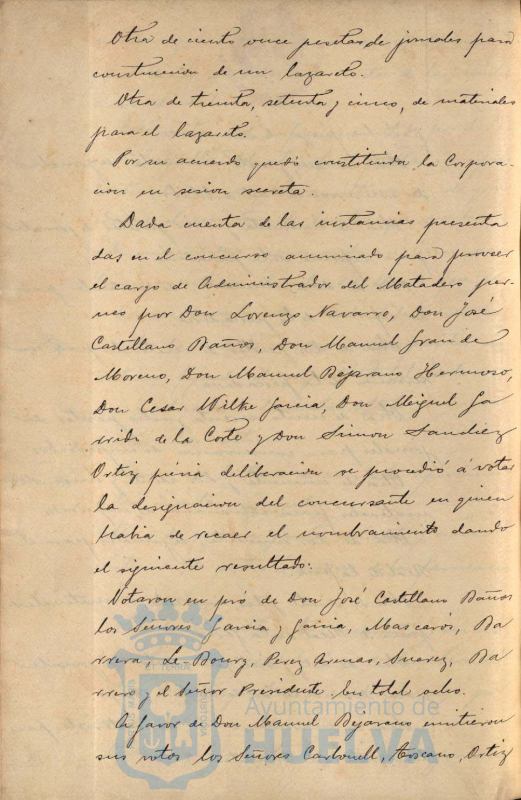 Otra de ciento once pesetas de jornales para
construccion de un lazareto.
Otra de treinta, setenta y cinco, de materiales
para el lazareto.
Por su acuerdo quedó constituida la Corpora-
cion en sesion secreta.
Dada cuenta de las instancias presenta
das en el concurso anunciado para proveer
el cargo de Administrador del Matadero pu-
nco por Don Lorenzo Navarro, Don José
Castellano Baños, Don Manuel Grande
Moreno, Don Manuel Bejarano Hermoso,
Don Cesar Wilke Garcia, Don Miguel Ga
rrido de la Corte y Don Simon Sanchez
Ortiz prévia deliberacion se procedió á votar
la designacion del concursante en quien
habia de recaer el nombramiento dando
el siguiente resultado:
Votaron en pró de Don José Castellano Baños
los Señores Garcia y Garcia, Mascarós, Ba
rrera, Le-Bourg, Perez Arenas, Suarez, Ba
rrero y el Señor Presidente. En total ocho.
A favor de Don Manuel Bejarano emitieron
sus votos los Señores Carbonell, Toscano, Ortiz
Ayuntamiento de
HUELVA